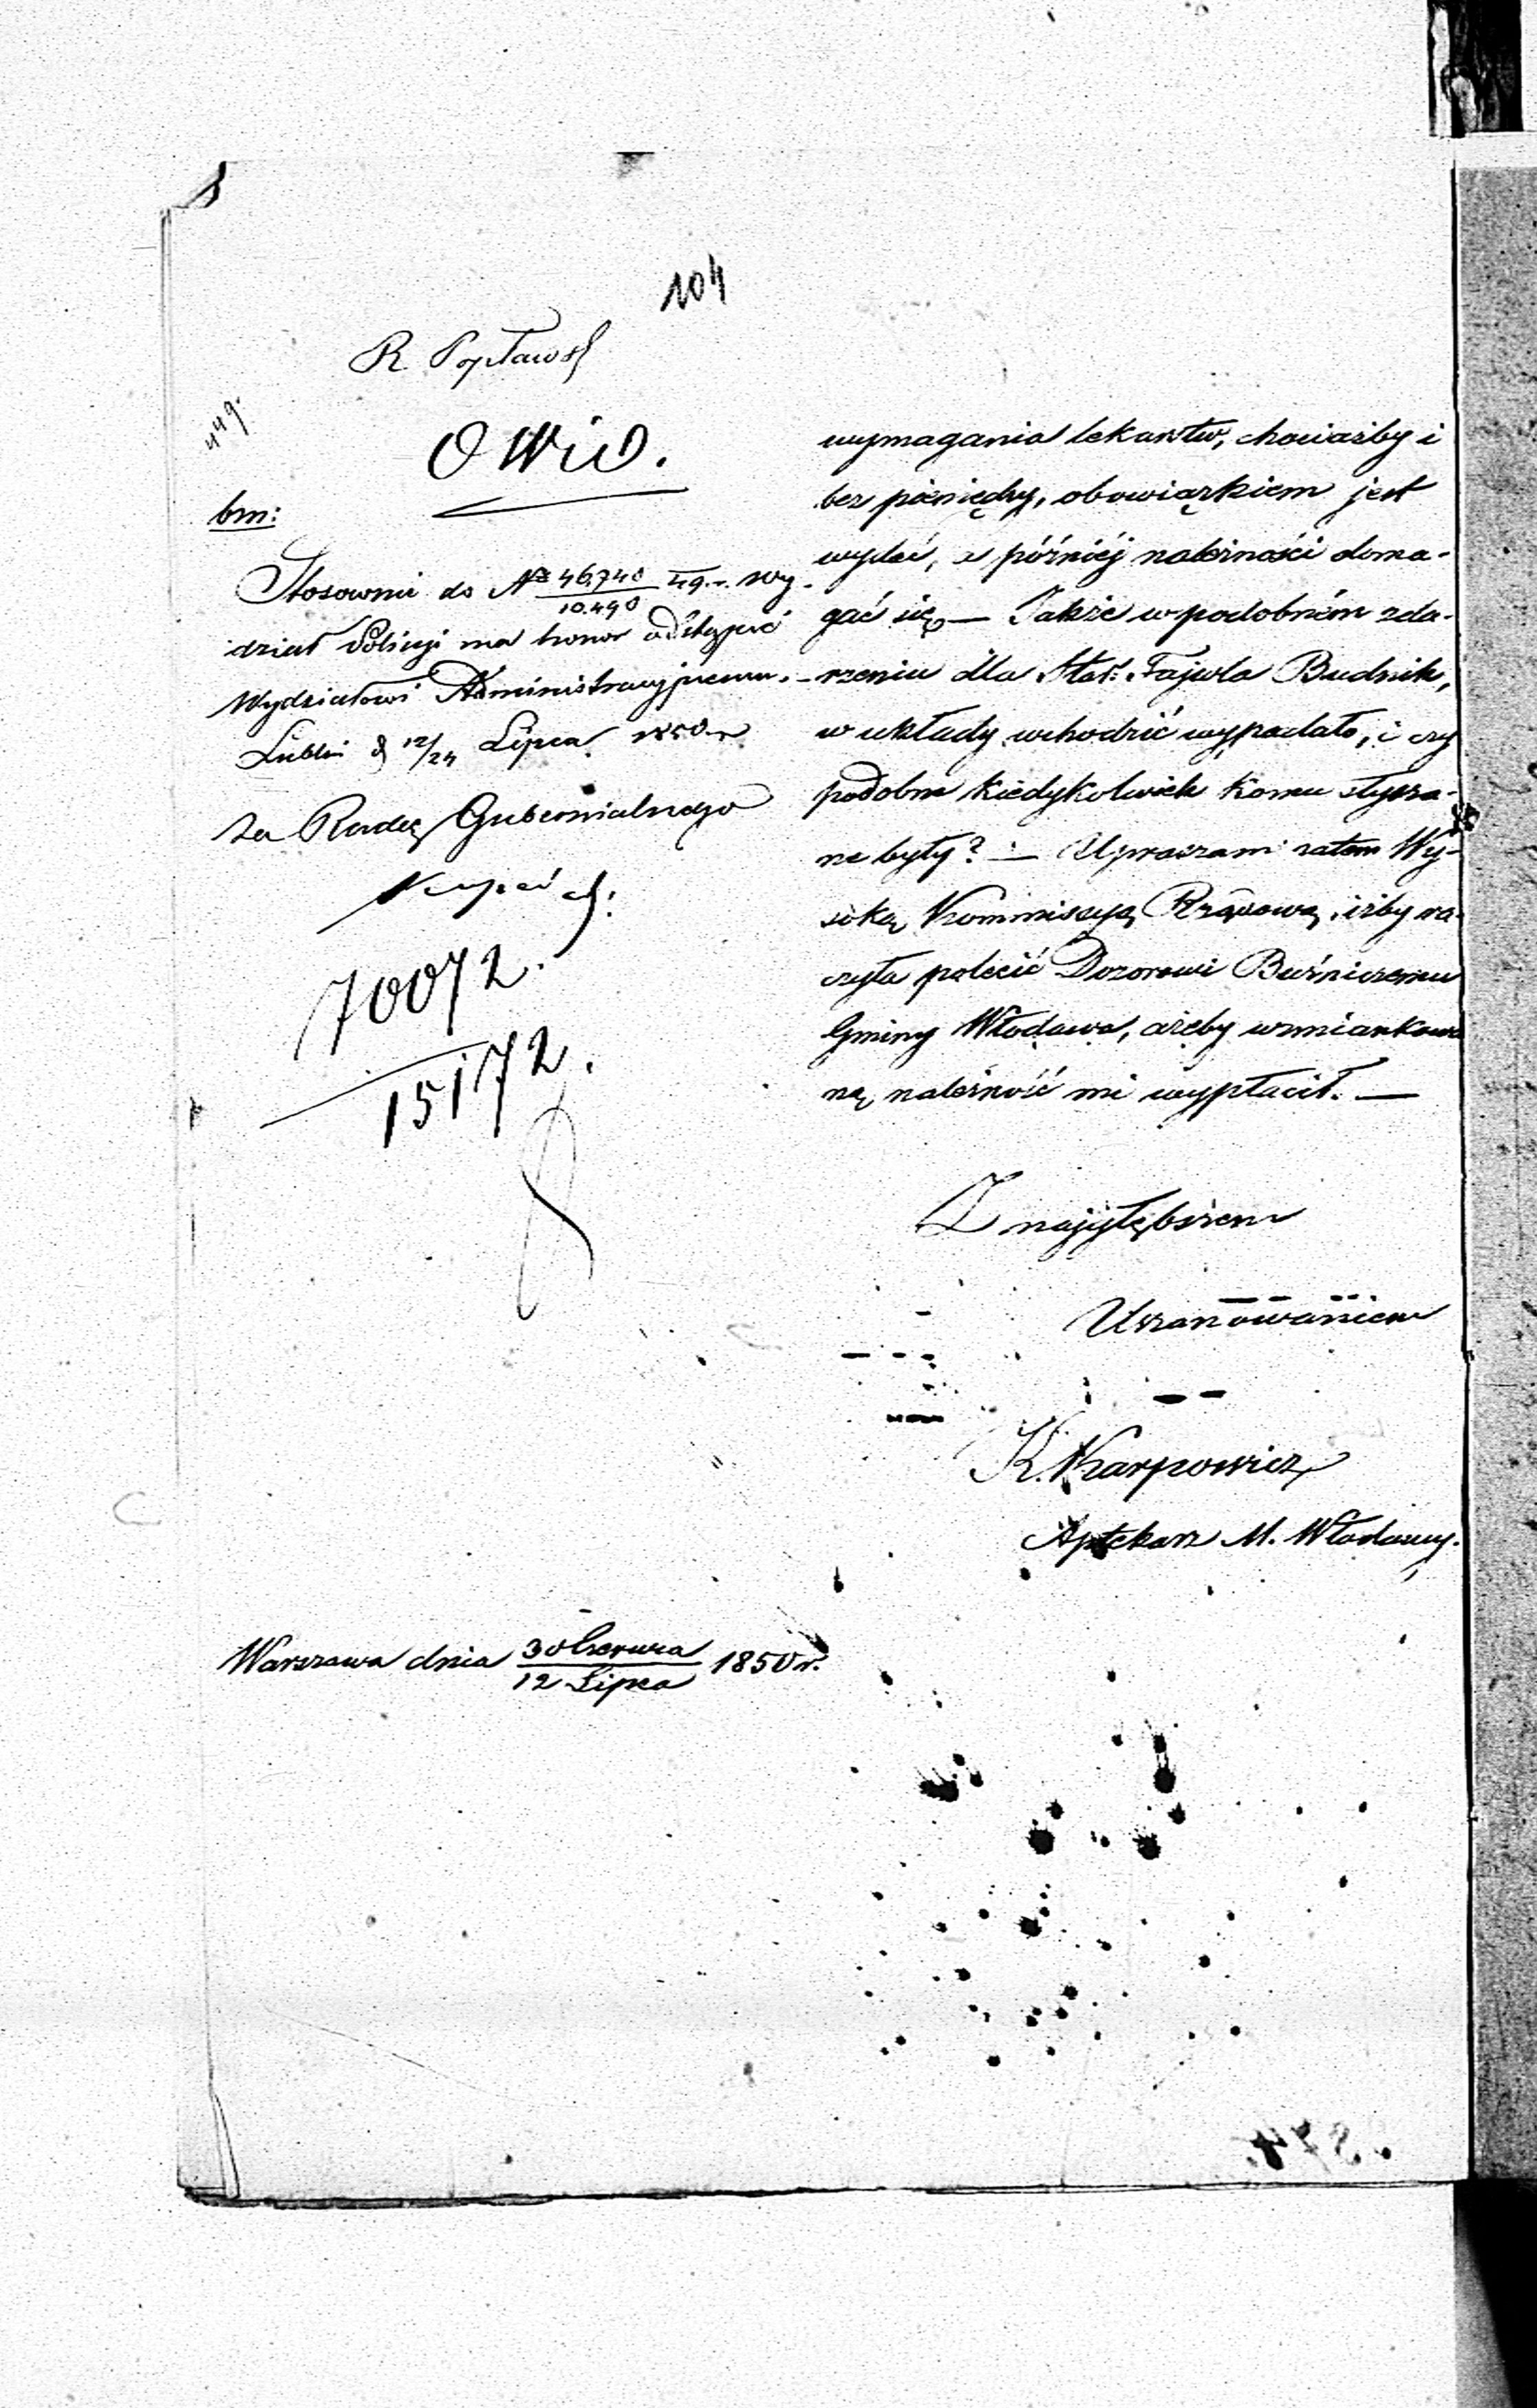 104
R Popławs
449.
OWid.
bm:
Stosownie do № 46,740/10,490 49.- Wy-
dział Policyi ma honor odstąpić
Wydziałowi Administracyjnemu.-
Lublin d 12/24 Lipca 1850 r
Za Radcę Gubernialnego
70072.
15172.
wymagania lekarstw, chociażby i
bez pieniędzy, obowiązkiem jest
wydać, a późniéj należności doma-
gać się — Jakże w podobném zda-
rzeniu dla Star: Fajwla Budnik,
w układy wchodzić wypadało, i czy
podobne kiedykolwiek komu słysza-
ne były? — Upraszam zatem Wy-
soką Kommissyą Rządową, iżby ra-
czyła polecić Dozorowi Bużniczemu
Gminy Włodawa, ażeby wzmiankowa
ną należność mi wypłacił. —
Z najgłębszem
Uszanowaniem
K. Karpowicz
Aptekarz M. Włodawy.
Warszawa dnia 30 Czerwca/12 Lipca 1850 r.